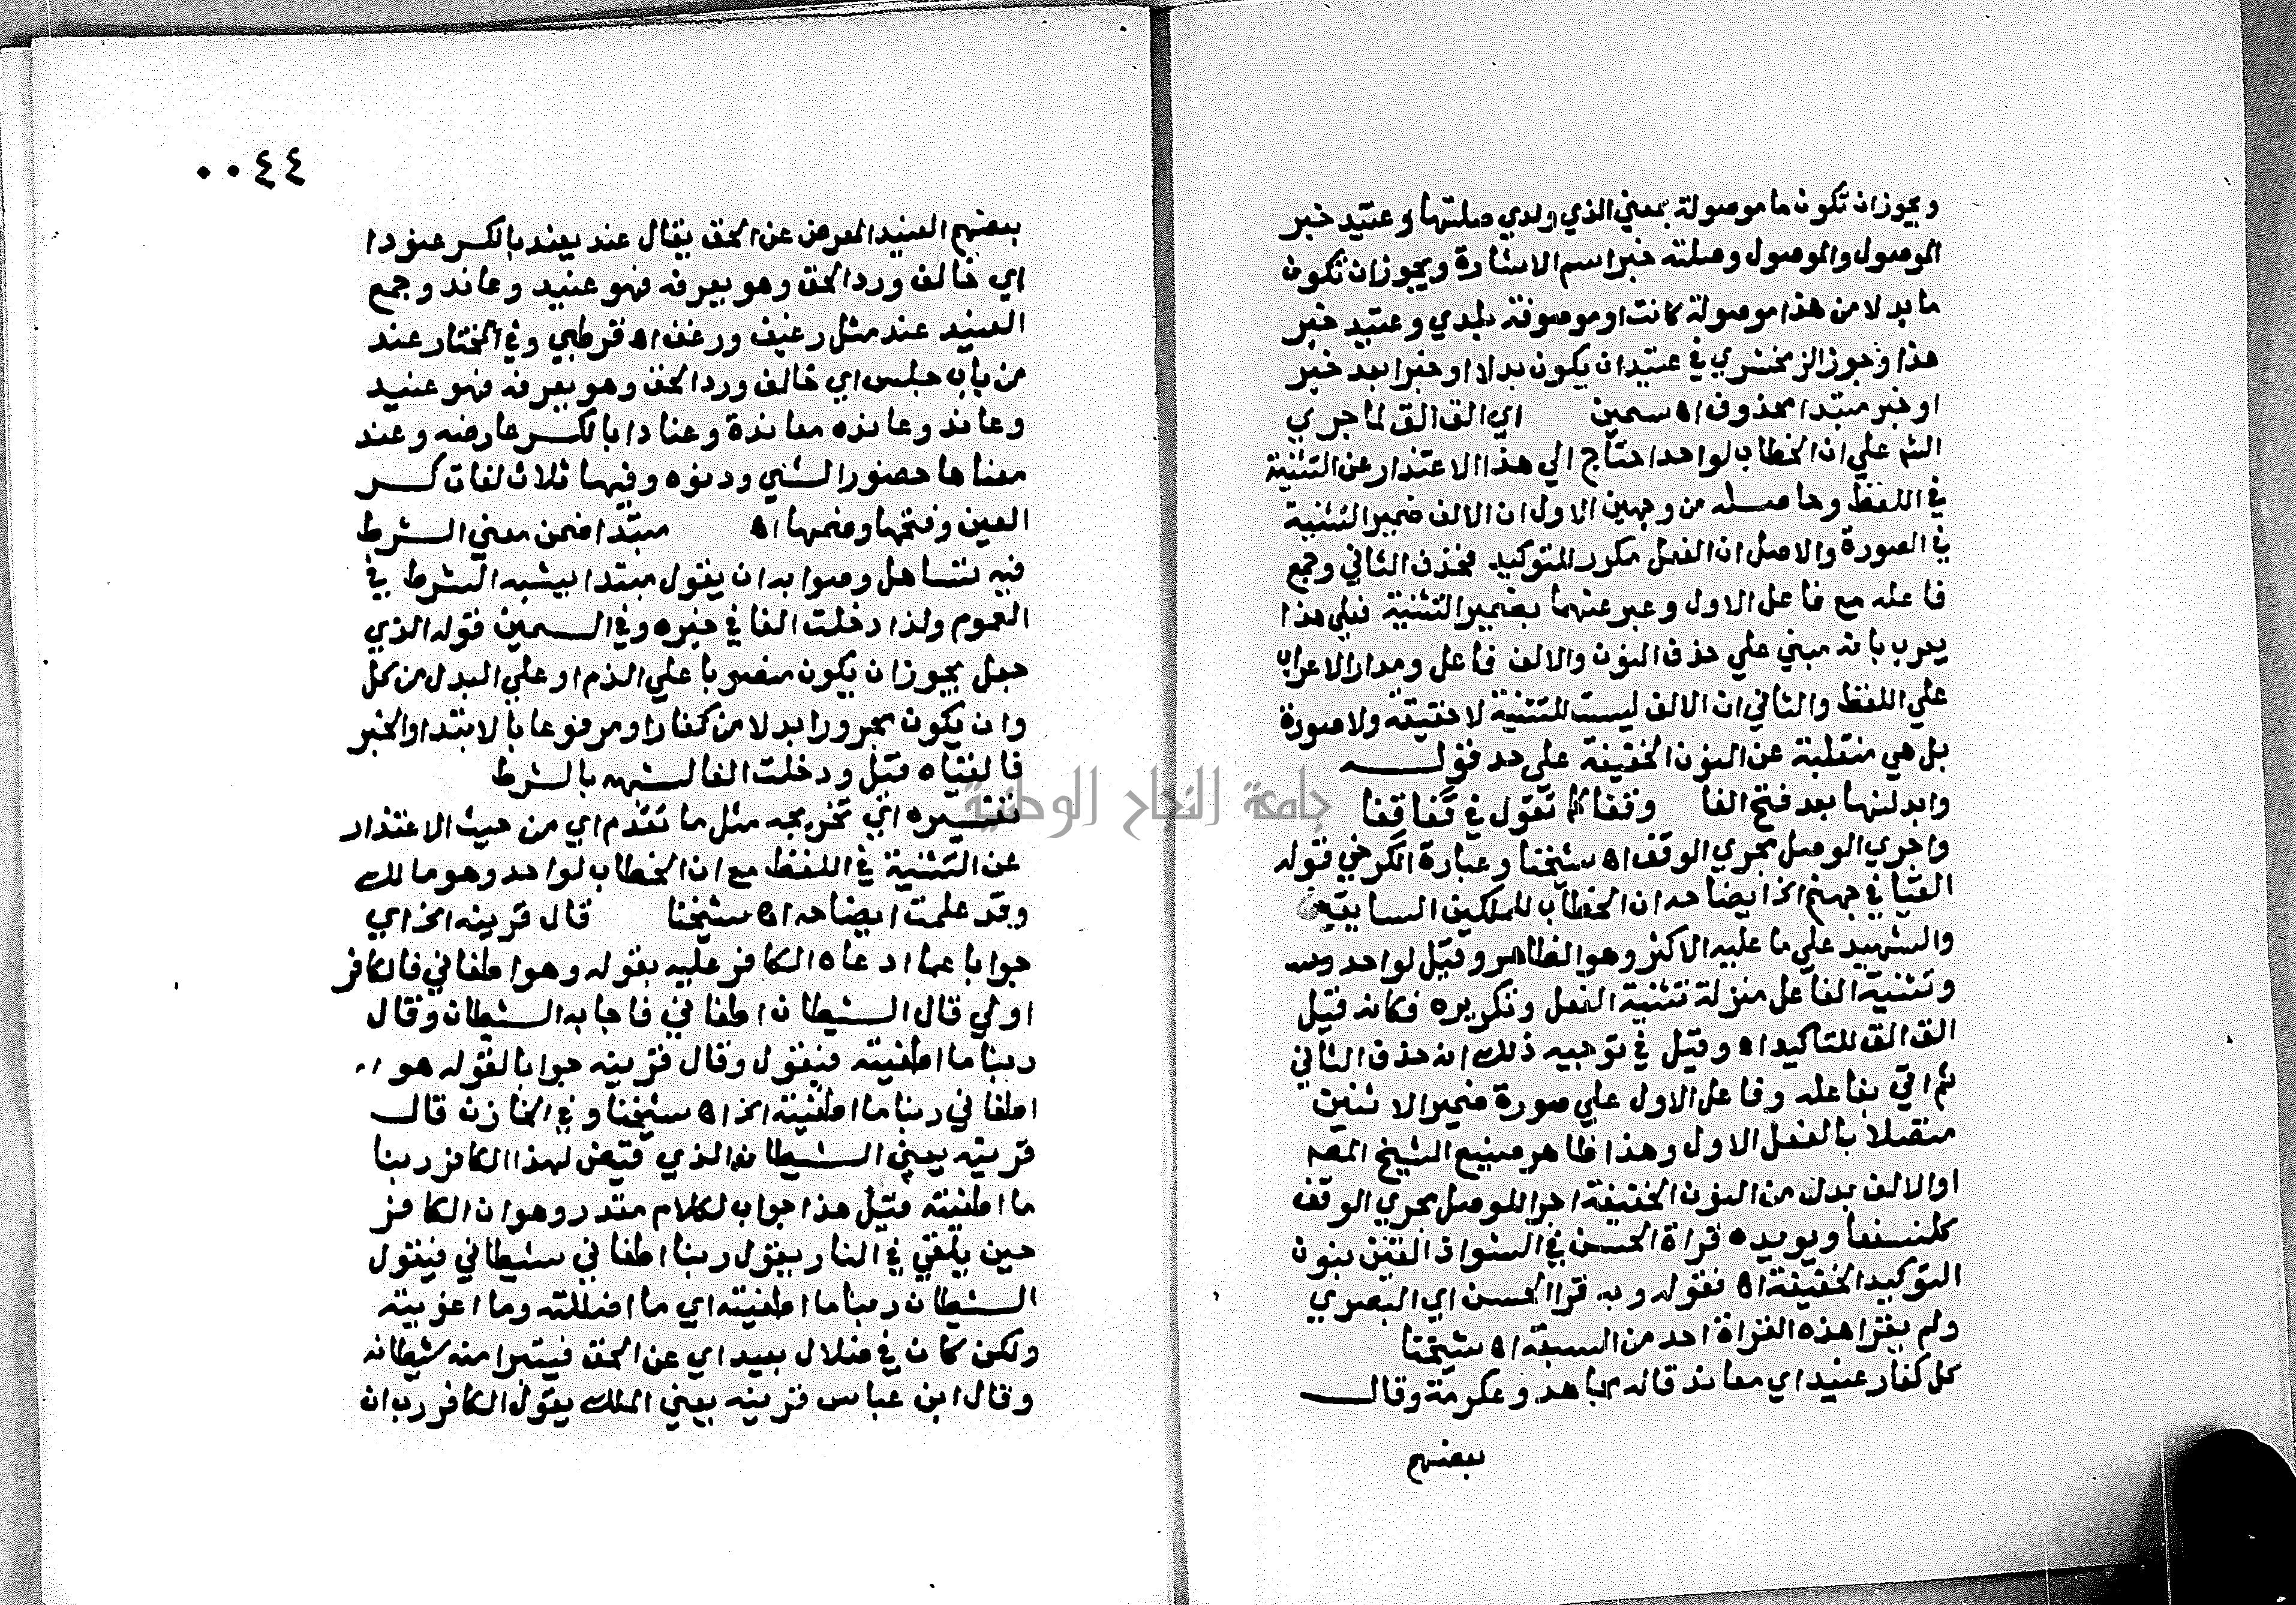 ويجوز ان تكون ما موصولة بمعني الذي ولدي صلتها وعتيد خبر
الموصول والموصول وصلته خبر اسم الاشارة ويجوز ان تكون
ما بدلا من هذا موصولة كانت او موصوفة بلدي وعتيد خبر
هذا وجوز الزمخشري في عتيد ان يكون بدلا او خبرا بعد خبر
او خبر مبتدا محذوف اه سمين اي الق الق لما جري
الشم علي ان الخطاب لواحد احتاج الي هذا الاعتذار عن التثنية
في اللفظ وحاصله من وجهين الاول ان الالف ضمير التثنية
في الصورة والاصل ان الفعل مكرر للتوكيد فحذف الثاني وجمع
فاعله مع فاعل الاول وعبر عنهما بضمير التثنية فعلي هذا
يعرب بانه مبني علي حذف النون والالف فاعل ومدار الاعراب
علي اللفظ والثاني ان الالف ليست للتثنية لا حقيقة ولا صورة
بل هي منقلبة عن النون الخفيفة علي حد قوله
وابدلنها بعد فتح الفا وقفا كما تقول في قفا قفا
واجري الوصل مجري الوقف اه شيخنا وعبارة الكرخي قوله
القيا في جهنم الخ ايضاحه ان الخطاب للملكين السابقين
والشهيد علي ما عليه الاكثر وهو الظاهر وقيل لواحد
وتثنية الفاعل منزلة تثنية الفعل وتكريره فكانه قيل
الق الق للتاكيد اه وقيل في توجيه ذلك انه حذف الثاني
ثم اتي بفاعله وفاعل الاول علي صورة ضمير الاثنين
متصلا بالفعل الاول وهذا ظاهر صنيع الشيخ المصم
او الالف بدل من النون الخفيفة اجرا للوصل مجري الوقف
كلنسفعا ويويده قراة الحسن في الشواذ القين بنون
التوكيد الخفيفة اه فقوله وبه قرا الحسن اي البصري
ولم يقرا هذه القراة احد من السبعة اه شيخنا
كل كفار عنيد اي معاند قاله مجاهد وعكرمة وقال
بعضهم
٠٠٤٤
بعضهم العنيد المعرض عن الحق يقال عند يعند بالكسر عنودا
اي خالف ورد الحق وهو يعرفه فهو عنيد وعاند وجمع
العنيد عند مثل رغيف ورغف اه قرطبي وفي المختار عند
من باب جلس اي خالف ورد الحق وهو يعرفه فهو عنيد
وعاند وعانده معاندة وعنادا بالكسر عارضه وعند
معناها حضور الشي ودنوه وفيها ثلاث لغات كسر
العين وفتحها وضمها اه مبتدا ضمن معني الشرط
فيه تساهل وصوابه ان يقول مبتدا يشبه الشرط في
العموم ولذا دخلت الفا في خبره وفي السمين قوله الذي
جعل يجوز ان يكون منصوبا علي الذم او علي البدل من كل
وان يكون مجرورا بدلا من كفار او مرفوعا بالابتدا والخبر
فالقياه قيل ودخلت الفا لشبهه بالشرط
تفسيره اي تخريجه مثل ما تقدم اي من حيث الاعتذار
عن التثنية في اللفظ مع ان الخطاب لواحد وهو مالك
وقد علمت ايضاحه اه شيخنا قال قرينه الخ اي
جوابا عما ادعاه الكافر عليه بقوله وهو اطغاني فالكافر
اولي قال الشيطان اطغاني فاجابه الشيطان وقال
ربنا ما اطغيته فيقول وقال قرينه جوابا لقوله هو
اطغاني ربنا ما اطغيته الخ اه شيخنا وفي الخازن قال
قرينه يعني الشيطان الذي قيض لهذا الكافر ربنا
ما اطغيته قيل هذا جواب لكلام مقدر وهو ان الكافر
حين يلقي في النار يقول ربنا اطغاني شيطاني فيقول
الشيطان ربنا ما اطغيته اي ما اضللته وما اغويته
ولكن كان في ضلال بعيد اي عن الحق فيتبرا منه شيطانه
وقال ابن عباس قرينه يعني الملك يقول الكافر رب ان
جامعة النجاح الوطنية